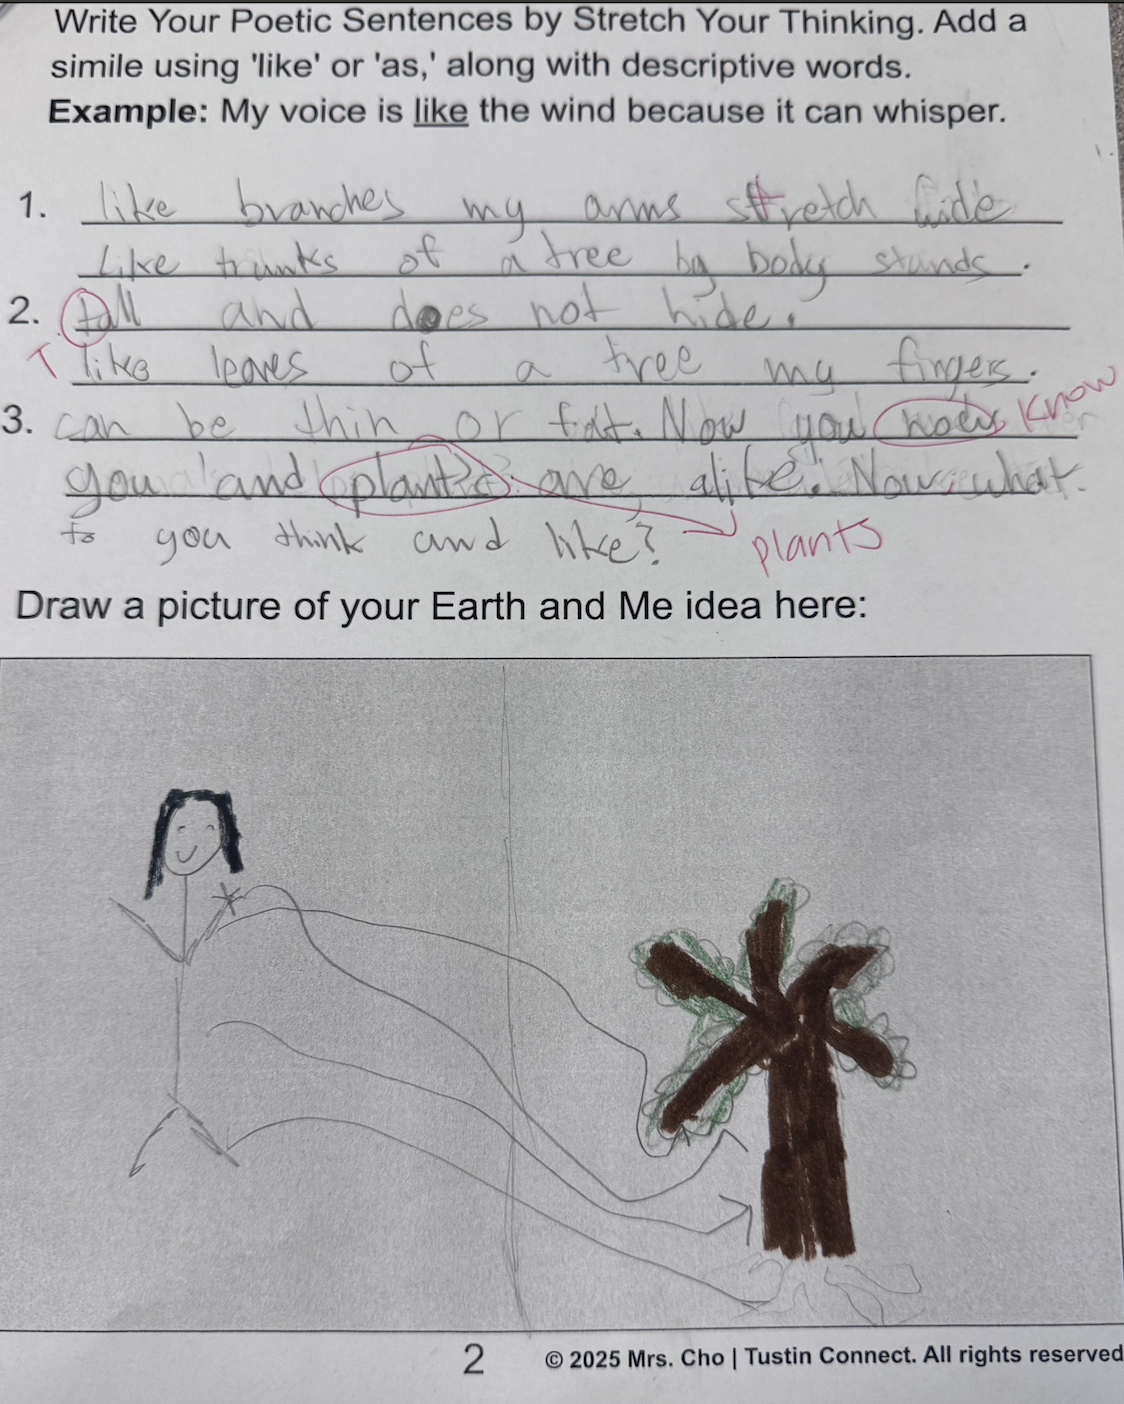 Write Your Poetic Sentences by Stretch Your Thinking. Add a
simile using 'like' or 'as,' along with descriptive words.
Example: My voice is like the wind because it can whisper.
1. like branches my arms stretch
Like trunks of a tree by body stands.
2. tall and does not hide.
T like leaves of a tree my fingers.
3. can be thin or fat. Now you know
you and plants are alike. Now what
to you think and like? plants
Draw a picture of your Earth and Me idea here:
2 © 2025 Mrs. Cho | Tustin Connect. All rights reserved